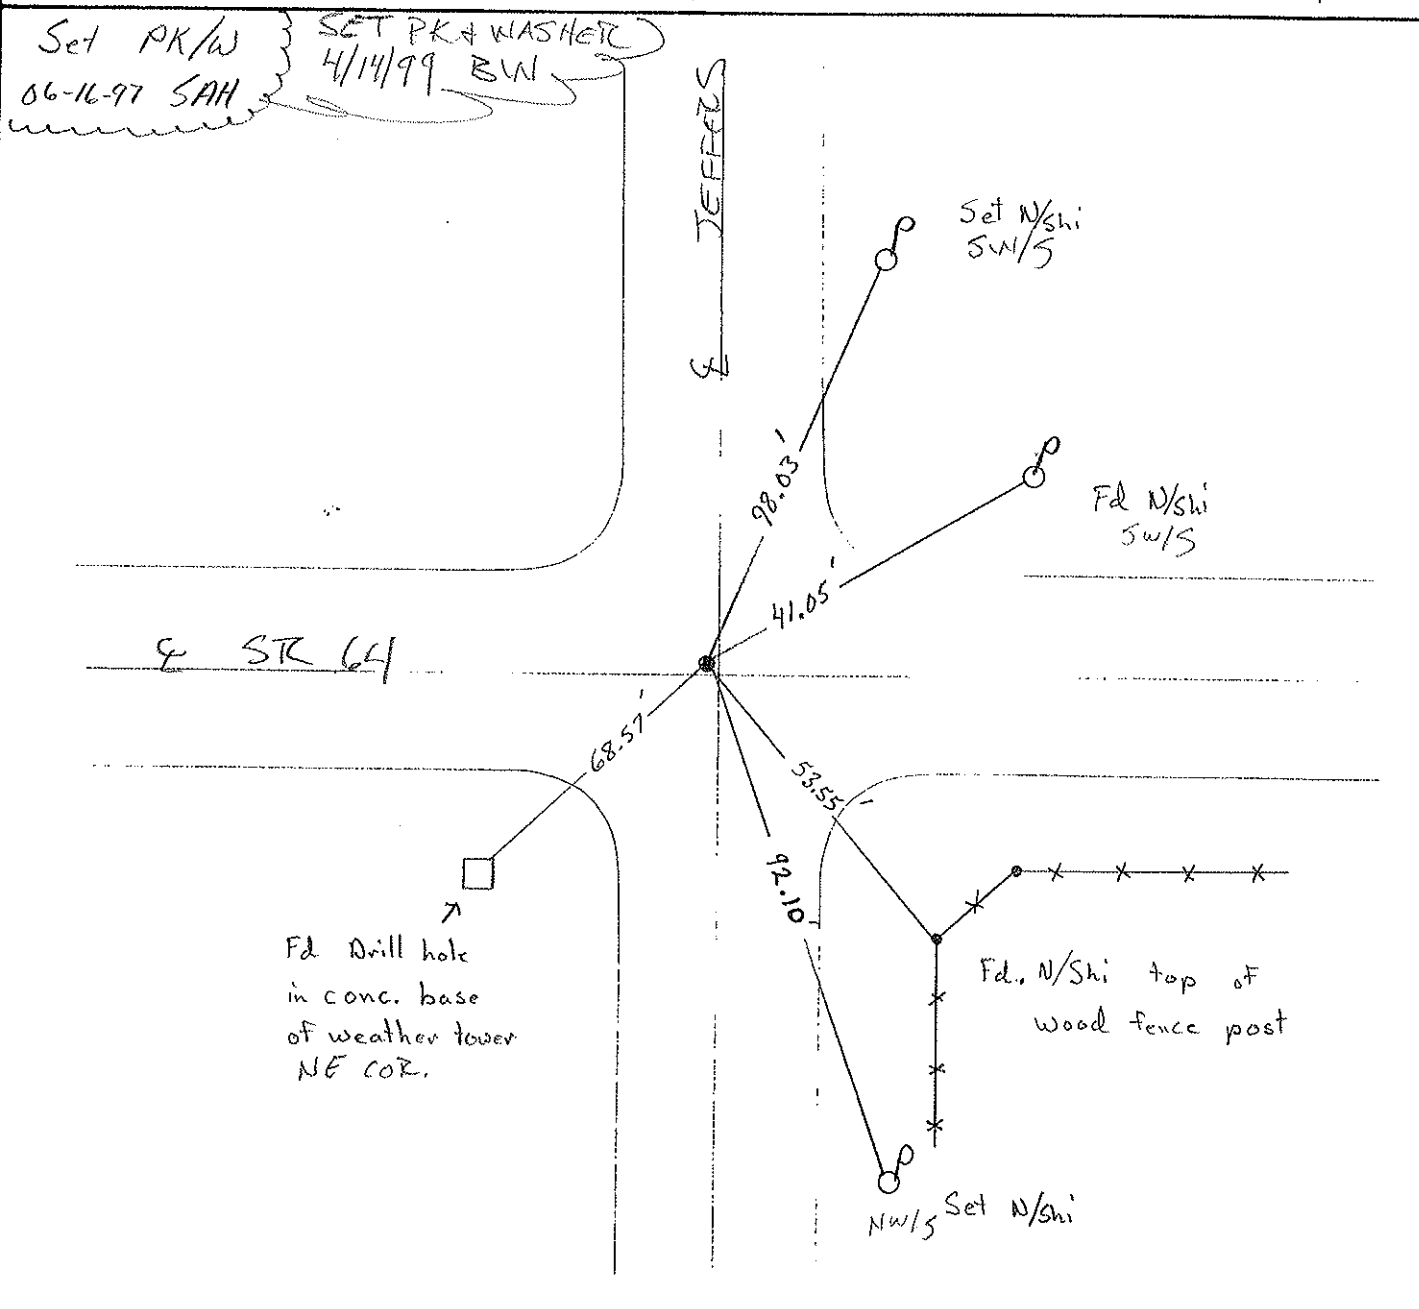 Set PK/W
06-16-97 SAH
SET PK & WASHER
4/14/99 BW
JEFFERS
℄
Set N/shi
SW/S
98.03'
Fd N/shi
SW/S
41.05'
℄ SR 64
68.57'
53.55'
92.10'
Fd Drill hole
in conc. base
of weather tower
NE COR.
Fd. N/Shi top of
wood fence post
NW/S Set N/shi